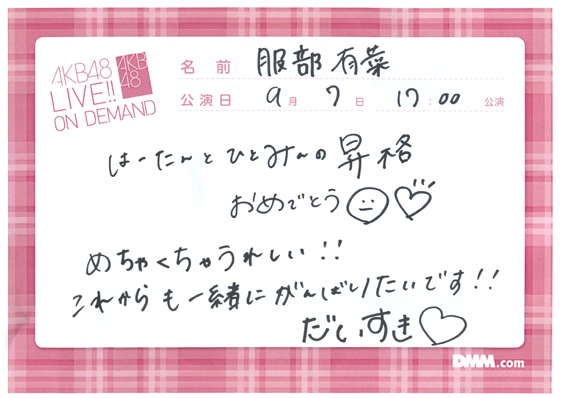 AKB48
LIVE!!
ON DEMAND
AKB
48
名前 服部有菜
公演日 9月7日 17:00 公演
はーたんとひとみんの昇格
おめでとう
めちゃくちゃうれしい!!
これからも一緒にがんばりたいです!!
だいすき♡
DMM.com